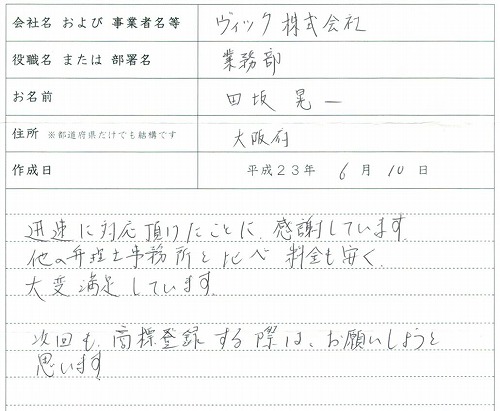 会社名 および 事業者名等 ヴィック株式会社
役職名 または 部署名 業務部
お名前 田坂 晃一
住所 ※都道府県だけでも結構です 大阪府
作成日 平成23年 6月 10日
迅速に対応頂けたことに、感謝しています。
他の弁理士事務所と比べ 料金も安く、
大変満足しています。
次回も、商標登録する際は、お願いしようと
思います